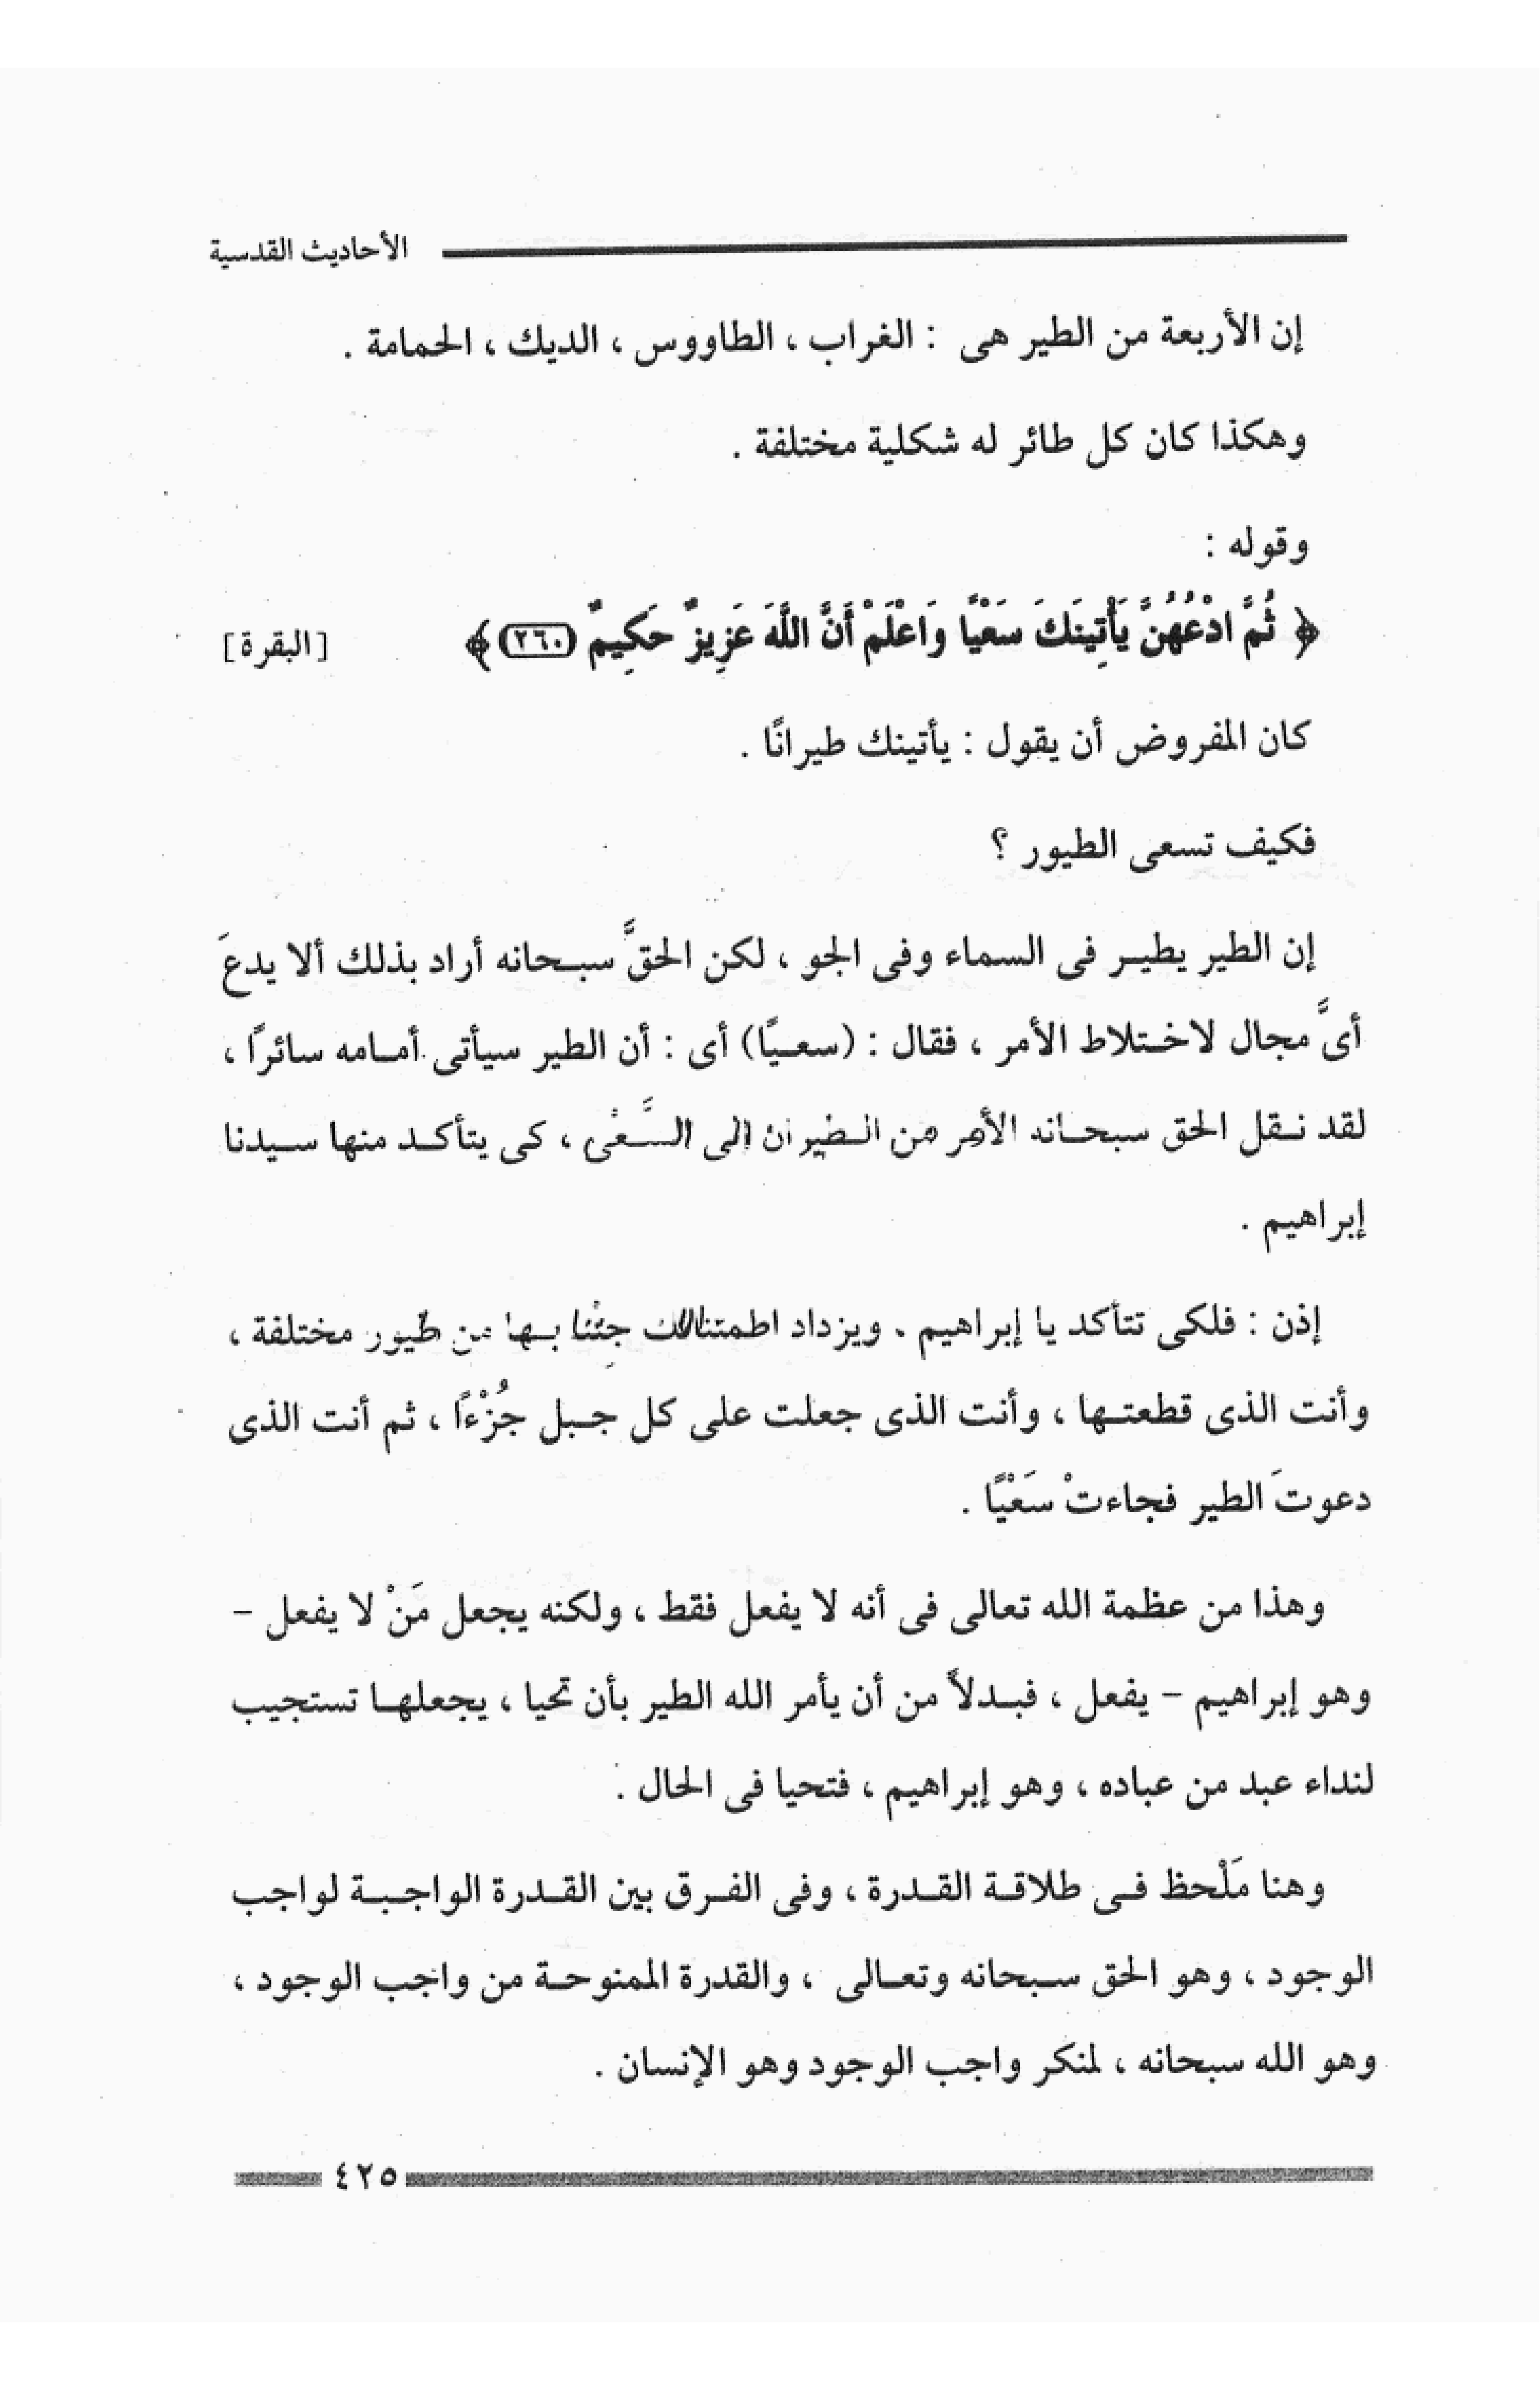 الأحاديث القدسية
إن الأربعة من الطير هى : الغراب ، الطاووس ، الديك ، الحمامة .
وهكذا كان كل طائر له شكلية مختلفة .
وقوله :
﴿ ثُمَّ ادْعُهُنَّ يَأْتِينَكَ سَعْيًا وَاعْلَمْ أَنَّ اللَّهَ عَزِيزٌ حَكِيمٌ (٢٦٠) ﴾ [البقرة]
كان المفروض أن يقول : يأتينك طيرانًا .
فكيف تسعى الطيور ؟
إن الطير يطير فى السماء وفى الجو ، لكن الحقَّ سبحانه أراد بذلك ألا يدعَ
أىَّ مجال لاختلاط الأمر ، فقال : (سعيًا) أى : أن الطير سيأتى أمامه سائرًا ،
لقد نقل الحق سبحانه الأمر من الطيران إلى السَّعْى ، كى يتأكد منها سيدنا
إبراهيم .
إذن : فلكى تتأكد يا إبراهيم . ويزداد جِئْنا بها من طيور مختلفة ،
وأنت الذى قطعتها ، وأنت الذى جعلت على كل جبل جُزْءًا ، ثم أنت الذى
دعوتَ الطير فجاءتْ سَعْيًا .
وهذا من عظمة الله تعالى فى أنه لا يفعل فقط ، ولكنه يجعل مَنْ لا يفعل –
وهو إبراهيم – يفعل ، فبدلاً من أن يأمر الله الطير بأن تحيا ، يجعلها تستجيب
لنداء عبد من عباده ، وهو إبراهيم ، فتحيا فى الحال .
وهنا مَلْحظ فى طلاقة القدرة ، وفى الفرق بين القدرة الواجبة لواجب
الوجود ، وهو الحق سبحانه وتعالى ، والقدرة الممنوحة من واجب الوجود ،
وهو الله سبحانه ، لمنكر واجب الوجود وهو الإنسان .
٤٢٥